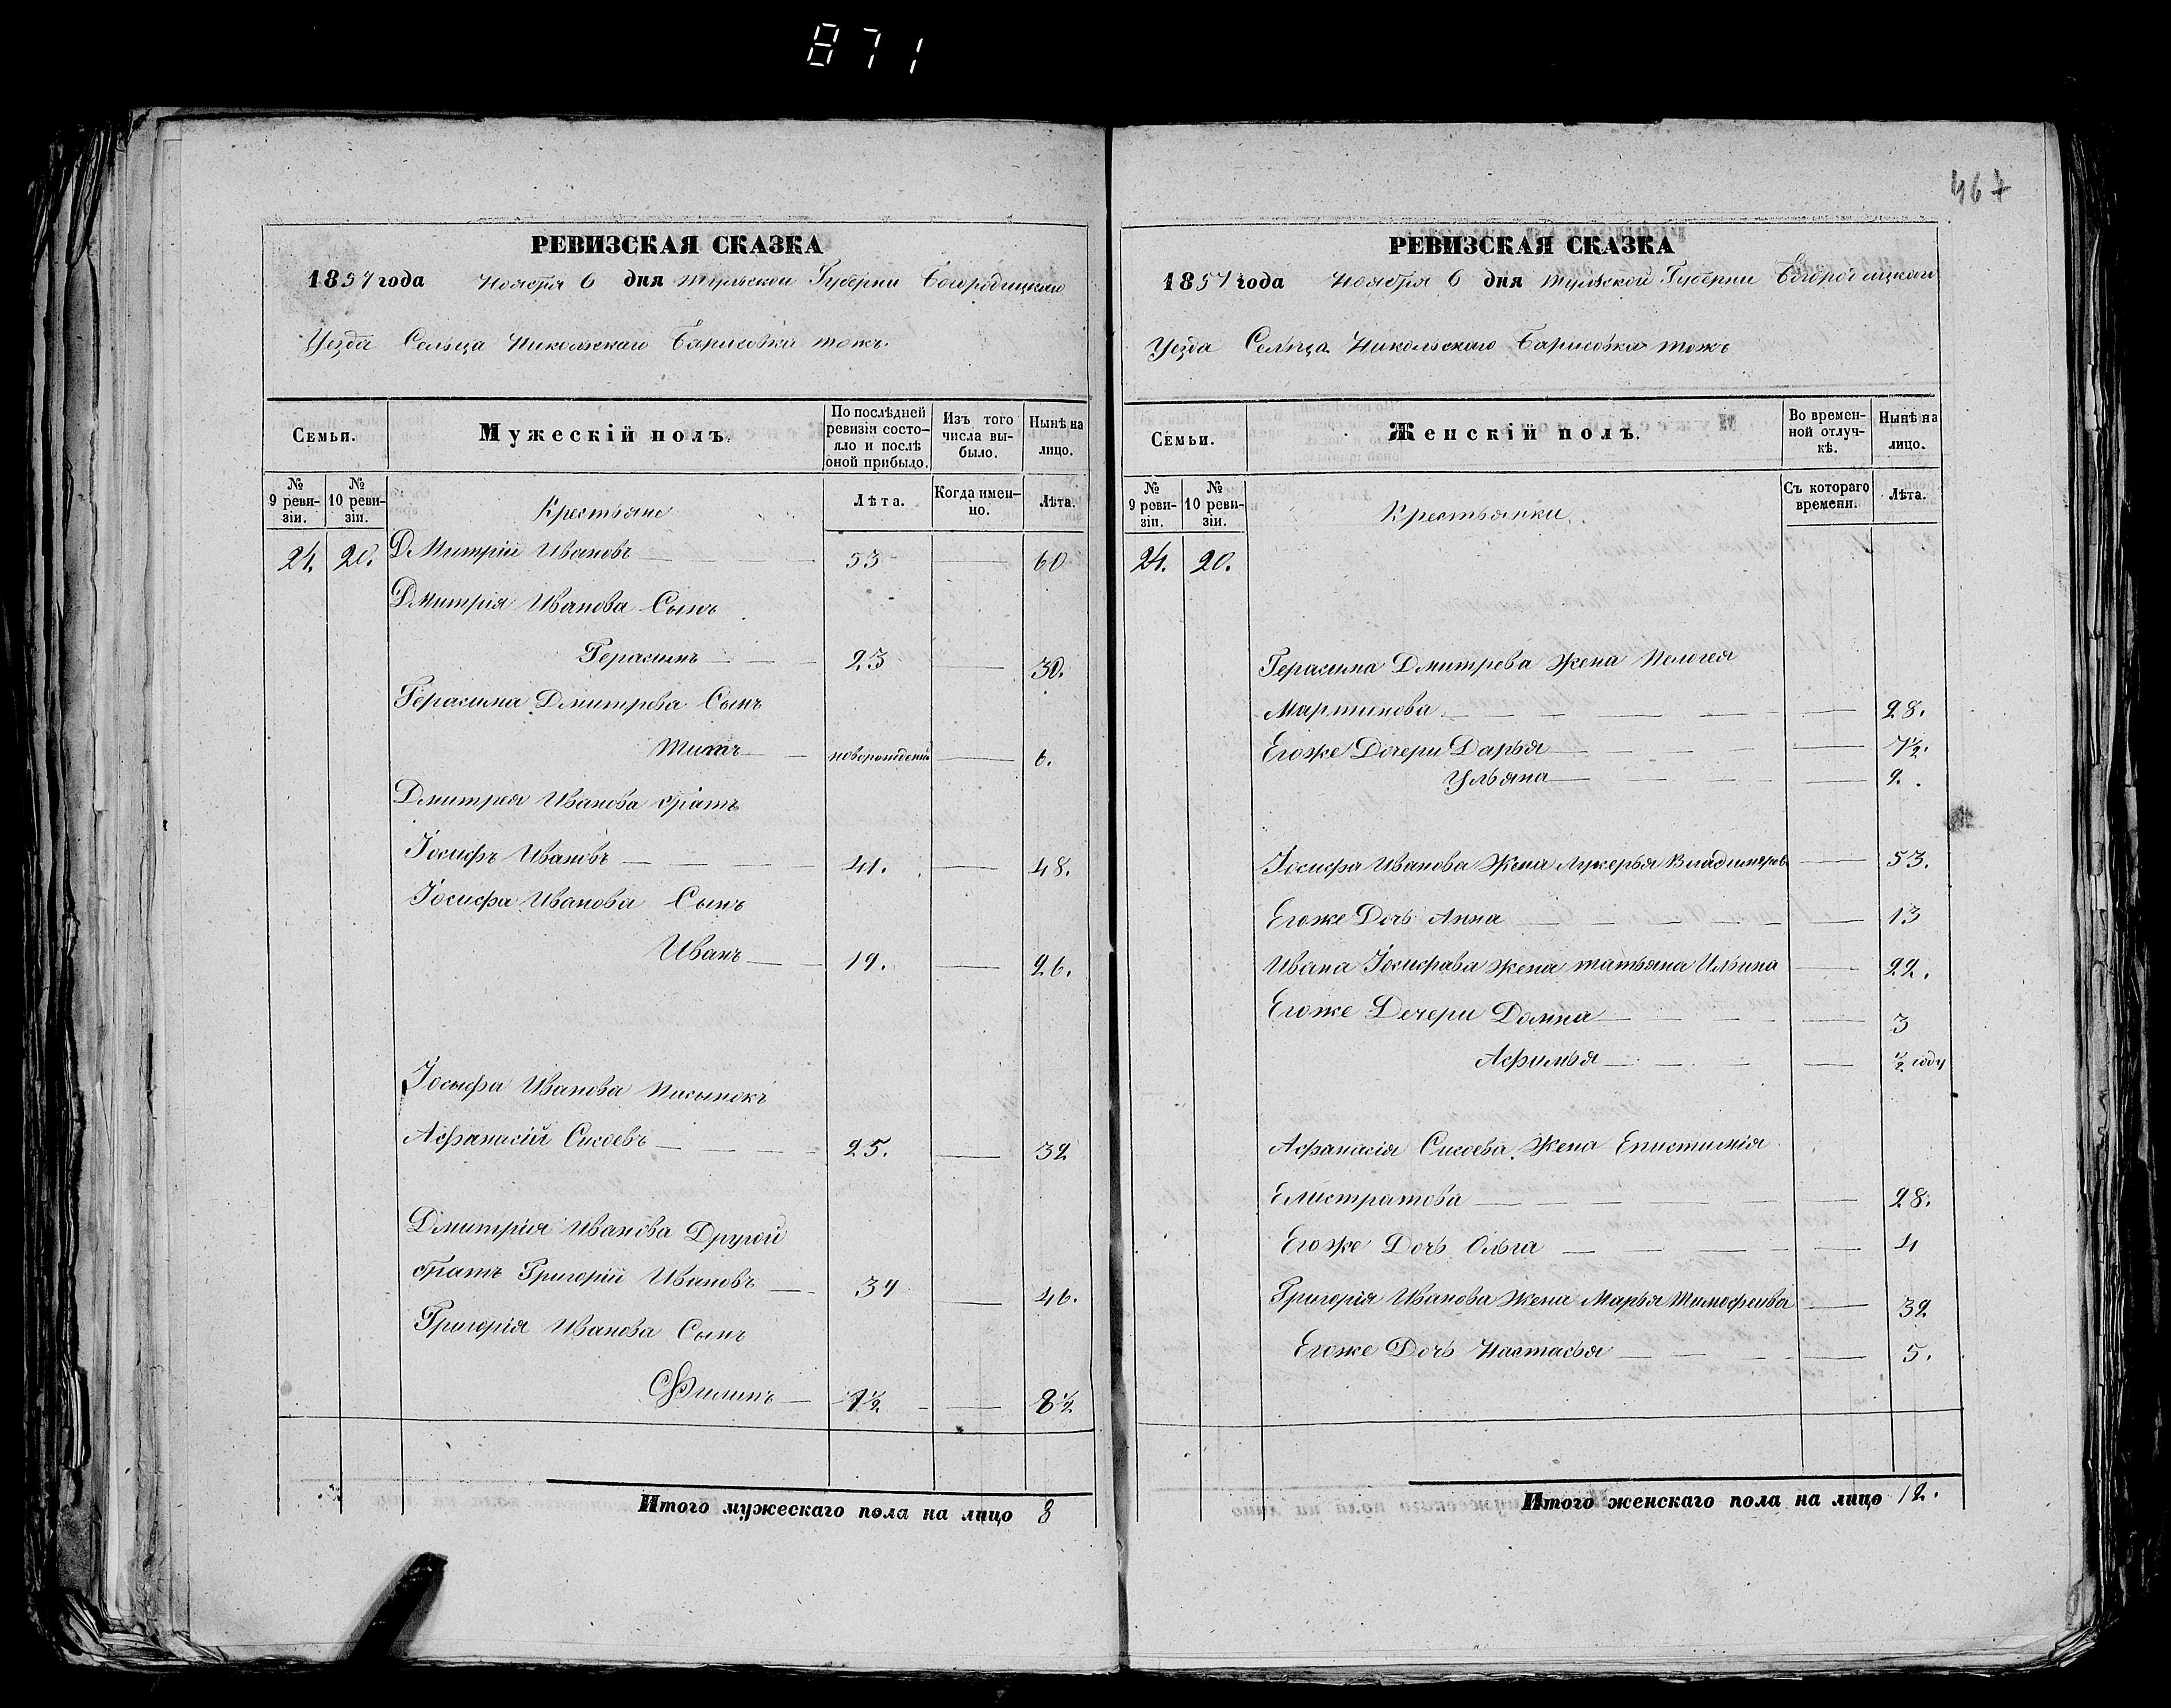 871
467
РЕВИЗСКАЯ СКАЗКА
1857 года Ноября 6 дня Тульской Губерни Богородицкаго
Уезда Сельца Никольскаго Барисовка тожъ.
Семьи. Мужескій полъ. По послѣдней ревизіи состояло и послѣ оной прибыло. Изъ того числа выбыло. Нынѣ на лицо.
№ 9 ревизіи. № 10 ревизіи. Крестьяне Лѣта. Когда именно. Лѣта.
24. 20. Дмитрій Ивановъ 53 60
Дмитрія Иванова Сынъ
Герасимъ 23 30.
Герасима Дмитрева Сынъ
Титъ новорожденъ 6.
Дмитрея Иванова братъ
Іосифъ Ивановъ 41. 48.
Іосифа Иванова Сынъ
Иванъ 19. 26.
Іосифа Иванова Пасынокъ
Афанасій Сисоевъ 25. 32
Дмитрія Иванова Другой
братъ Григорій Ивановъ 39 46.
Григорія Иванова Сынъ
Филипъ 1½ 8½
Итого мужескаго пола на лицо 8
РЕВИЗСКАЯ СКАЗКА
1857 года Ноября 6 дня Тульской Губерни Богородицкаго
Уезда Сельца Никольскаго Барисовка тожъ
Семьи. Женскій полъ. Во временной отлучкѣ. Нынѣ на лицо.
№ 9 ревизіи. № 10 ревизіи. Крестьянки. Съ котораго времени. Лѣта.
24. 20.
Герасима Дмитрева Жена Пелогея
Мартинова 28.
Егоже Дочери Дарья 7½.
Ульяна 2.
Іосифа Иванова Жена Лукерья Владимерова 53.
Егоже Дочь Анна 13
Ивана Іосифава Жена Татьяна Ильина 22.
Егоже Дочери Домна 3
Афимья ½ году
Афанасія Сисоева Жена Епистимія
Елистратова 28.
Егоже Дочь Ольга 4
Григорія Иванова Жена Марья Тимофеива 32
Егоже Дочь Настасья 5.
Итого женскаго пола на лицо 12.